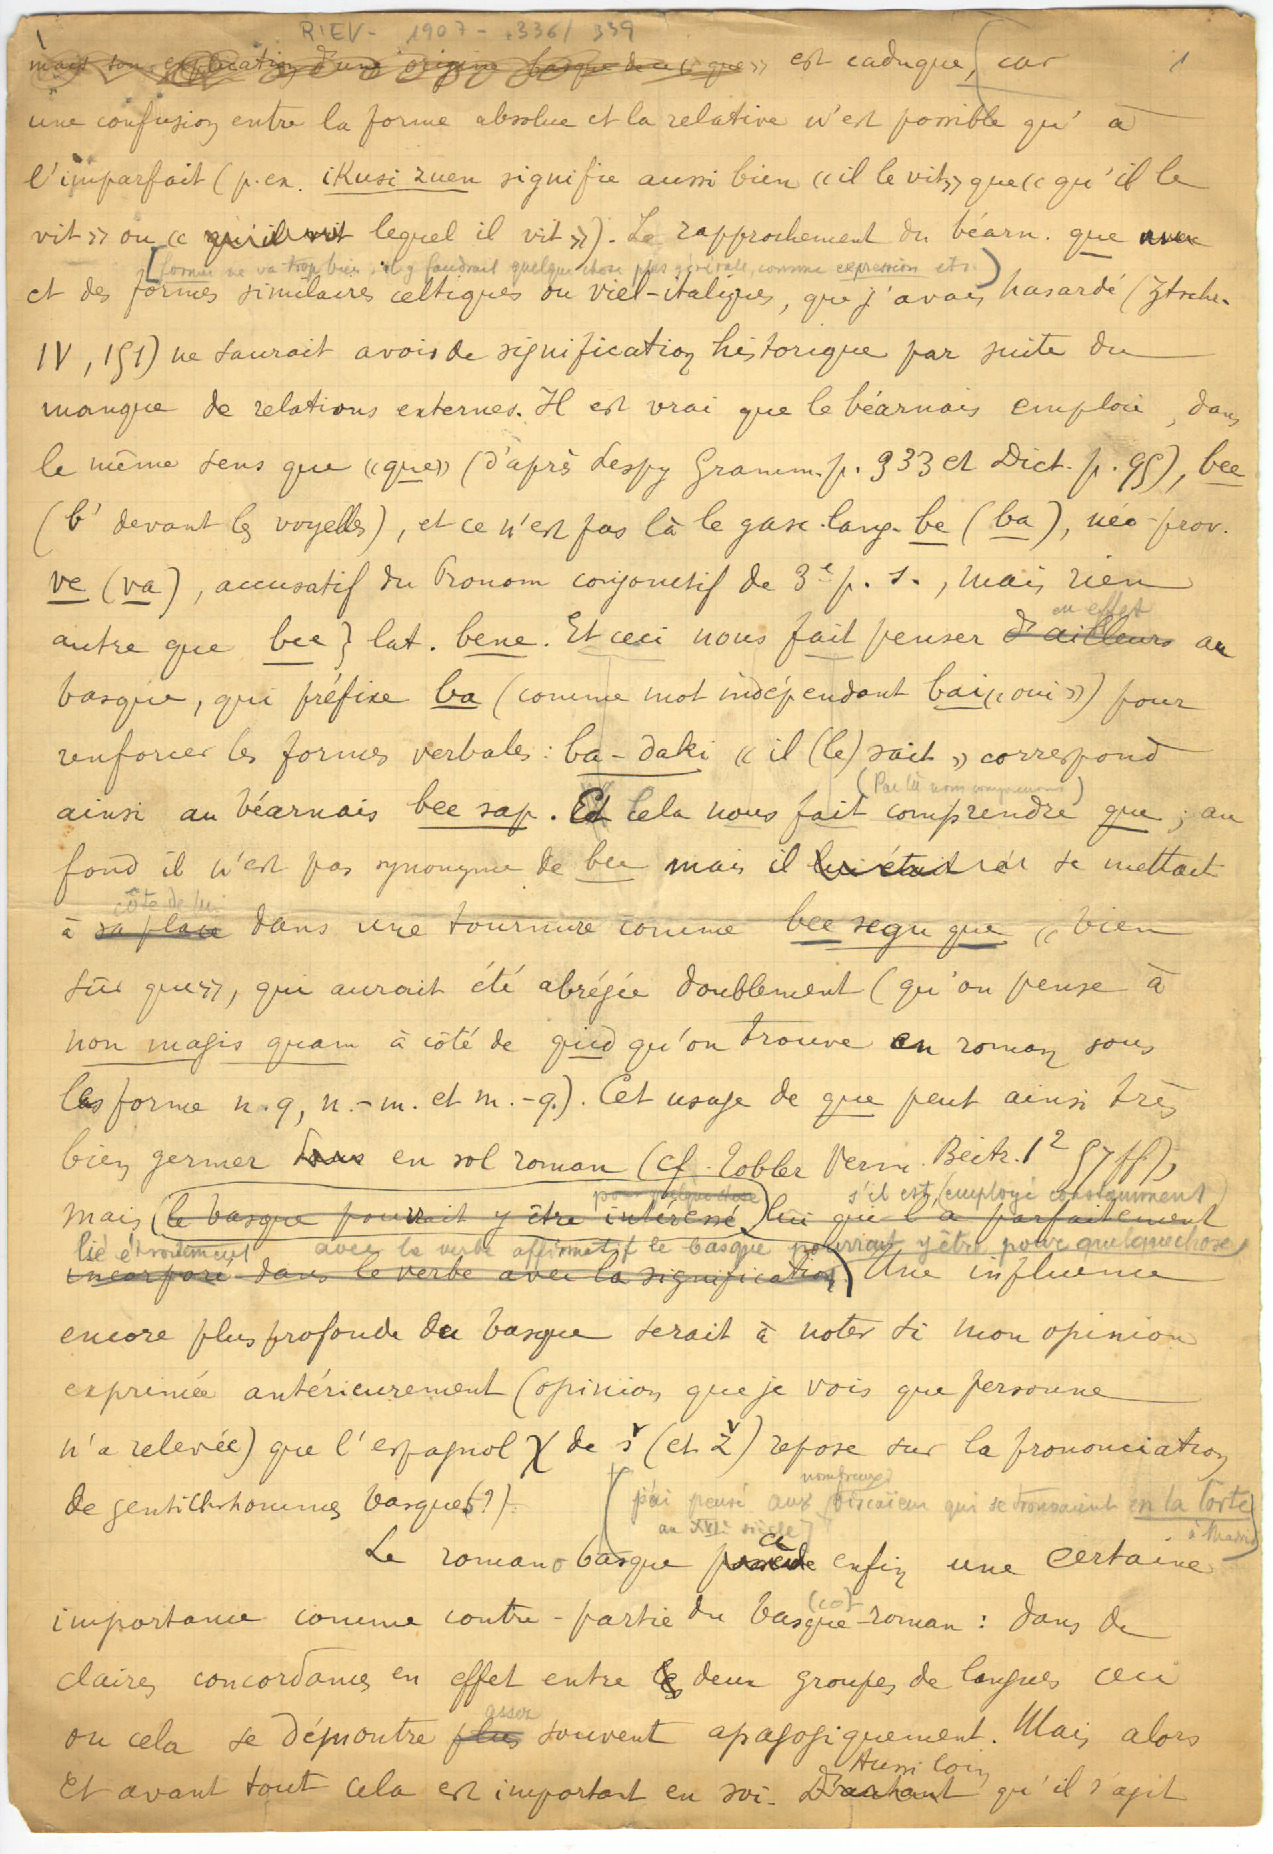 RIEV - 1907 - 336/339
mais son explication d'une origine basque de ce «que» est caduque, car 1
une confusion entre la forme absolue et la relative n'est possible qu'à
l'imparfait (p. ex. ikusi zuen signifie aussi bien «il le vit» que «qu'il le
vit» ou « qu'il vit lequel il vit »). Le rapprochement du béarn. que avec
[formes ne va trop bien, il y faudrait quelque chose plus générale, comme expression etc.)
et des formes similaires celtiques ou vieil-italiques, que j'avais hasardé (Ztschr.
IV, 151) ne saurait avoir de signification historique par suite du
manque de relations externes. Il est vrai que le béarnais emploie, dans
le même sens que «que» (d'après Lespy Gramm. p. 333 et Dict. p. 95), bee
(b' devant les voyelles), et ce n'est pas là le gasc.-lang. be (ba), néo-prov.
ve (va), accusatif du Pronom conjonctif de 3e p. s., mais rien
en effet
autre que bee } lat. bene. Et ceci nous fait penser d'ailleurs au
basque, qui préfixe ba (comme mot indépendant bai «oui») pour
renforcer les formes verbales : ba-daki « il (le) sait » correspond
(Par là nous comprenons)
ainsi au béarnais bee sap. Et cela nous fait comprendre que ; au
fond il n'est pas synonyme de bee mais il lui était se mettait
côté de lui
à sa place dans une tournure comme bee segu que « bien
sûr que», qui aurait été abrégée doublement (qu'on pense à
non magis quam à côté de quid qu'on trouve en roman sous
les forme n. q, n.-m. et m.-q.). Cet usage de que peut ainsi très
bien germer sous en sol roman (cf. Tobler Verm. Beitr. 1² 57 ff),
pour quelque chose s'il est employé constamment
mais (le basque pourrait y être intéressé) lui qui l'a parfaitement
lié étroitement avec le verbe affirmatif le basque pourrait y être pour quelque chose
incorporé dans le verbe avec la signification) Une influence
encore plus profonde du basque serait à noter si mon opinion
exprimée antérieurement (opinion que je vois que personne
n'a relevée) que l'espagnol χ de š (et ž) repose sur la prononciation
nombreux
de gentilshommes basques (?). (j'ai pensé aux Biscaïens qui se trouvaient en la Corte
au XVIe siècle] à Madrid)
a
Le romano basque possède enfin une certaine
(co)
importance comme contre-partie du basque-roman : dans de
claires concordances en effet entre les deux groupes de langues ceci
assez
ou cela se démontre plus souvent apagogiquement. Mais alors
Aussi loin
Et avant tout cela est important en soi. D'autant qu'il s'agit